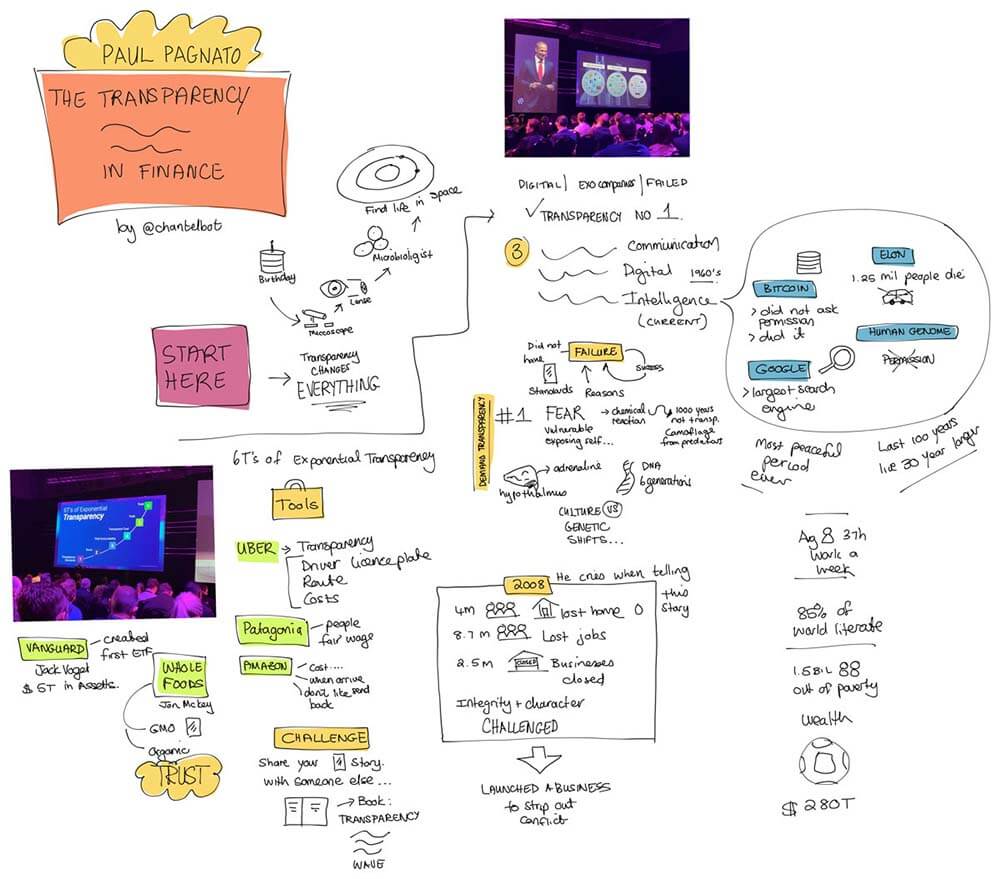 PAUL PAGNATO
THE TRANSPARENCY
IN FINANCE
by @chantelbot
START
HERE
Birthday
Microscope
Lense
Microbioligist
Find life in Space
Transparency
CHANGES
EVERYTHING
DIGITAL | EXO companies | FAILED
TRANSPARENCY NO 1
3
Communication
Digital 1960's
Intelligence
(CURRENT)
BITCOIN
> did not ask
permission
> did it
ELON
1.25 mil people die
HUMAN GENOME
PERMISSION
GOOGLE
> largest search
engine
Did not
have
Standards
FAILURE
Reasons
SUCCESS
DEMAND TRANSPARENCY
#1 FEAR
Vulnerable
exposing self...
chemical
reaction
1000 years
not transp.
Camoflage
from predators
adrenaline
hypothalmus
DNA
6 generations
CULTURE VS
GENETIC
SHIFTS...
Most peaceful
period
ever
Last 100 years
live 30 year longer
Avg 37h
work a
week
85% of
world literate
1.5 BIL
out of poverty
wealth
$ 280T
2008
He cries when telling
this
Story
4m lost home
8.7m Lost jobs
2.5m CLOSED Businesses
closed
Integrity + character
CHALLENGED
LAUNCHED A BUSINESS
to strip out
conflict
6T's of Exponential Transparency
6T's of Exponential
Transparency
Tools
UBER
Transparency
Driver Licence plate
Route
Costs
Patagonia
people
fair wage
AMAZON
Cost....
when arrive
don't like send
back
VANGUARD
created
first ETF
Jack Vogel
$ 5T in Assetts.
WHOLE
FOODS
Jon Mckey
GMO
Organic
TRUST
CHALLENGE
Share your Story.
with someone else...
Book:
TRANSPARENCY
WAVE